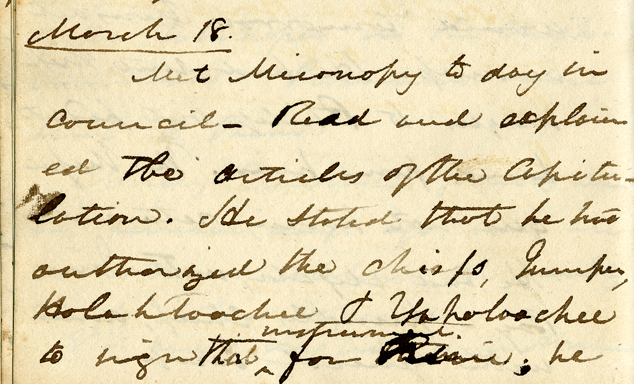 March 18.
Met Miconopy to day in
Council - Read and explain
ed the articles of the Capitu-
lation. He stated that he had
authorized the chiefs, Jumper,
Holahtoochee & Yaholoochee
instrument
to sign that ^ for him; he